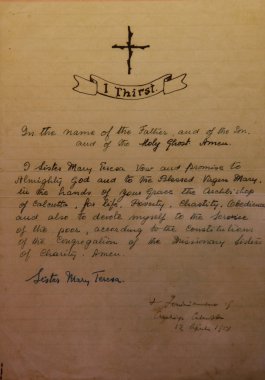 I Thirst.
In the name of the Father, and of the Son,
and of the Holy Ghost Amen.
I Sister Mary Teresa Vow and promise to
Almighty God and to the Blessed Virgin Mary,
in the hands of Your Grace the Archbishop
of Calcutta, for life, Poverty, Chastity, Obedience
and also to devote myself to the Service
of the poor, according to the Constitutions
of the Congregation of the Missionary Sisters
of Charity. Amen.
Sister Mary Teresa.
+ Ferdinand